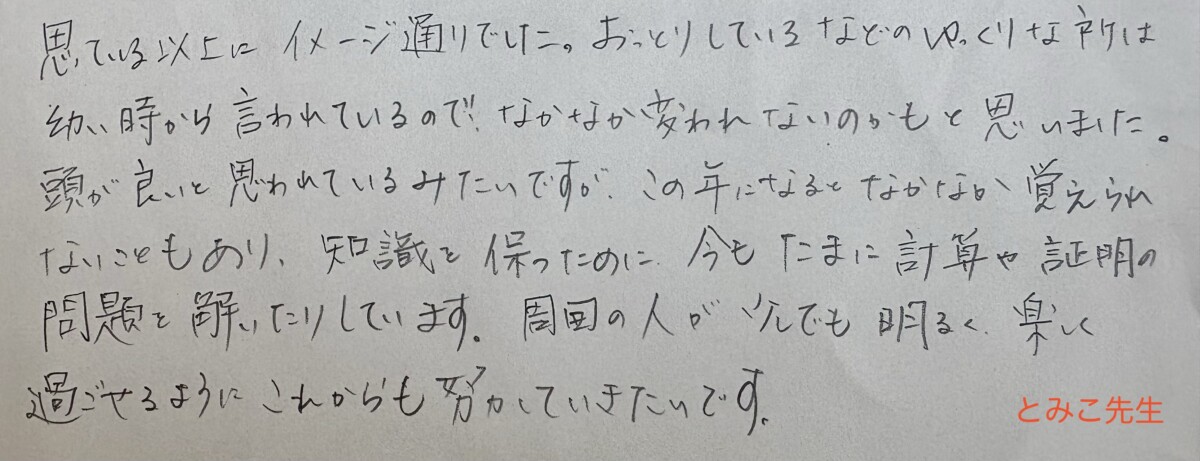 思っている以上にイメージ通りでした。おっとりしているなどのゆっくりな所は
幼い時から言われているので、なかなか変われないのかもと思いました。
頭が良いと思われているみたいですが、この年になるとなかなか覚えられ
ないこともあり、知識を保つために、今もたまに計算や証明の
問題を解いたりしています。周囲の人が少しでも明るく、楽しく
過ごせるようにこれからも努力していきたいです。
とみこ先生